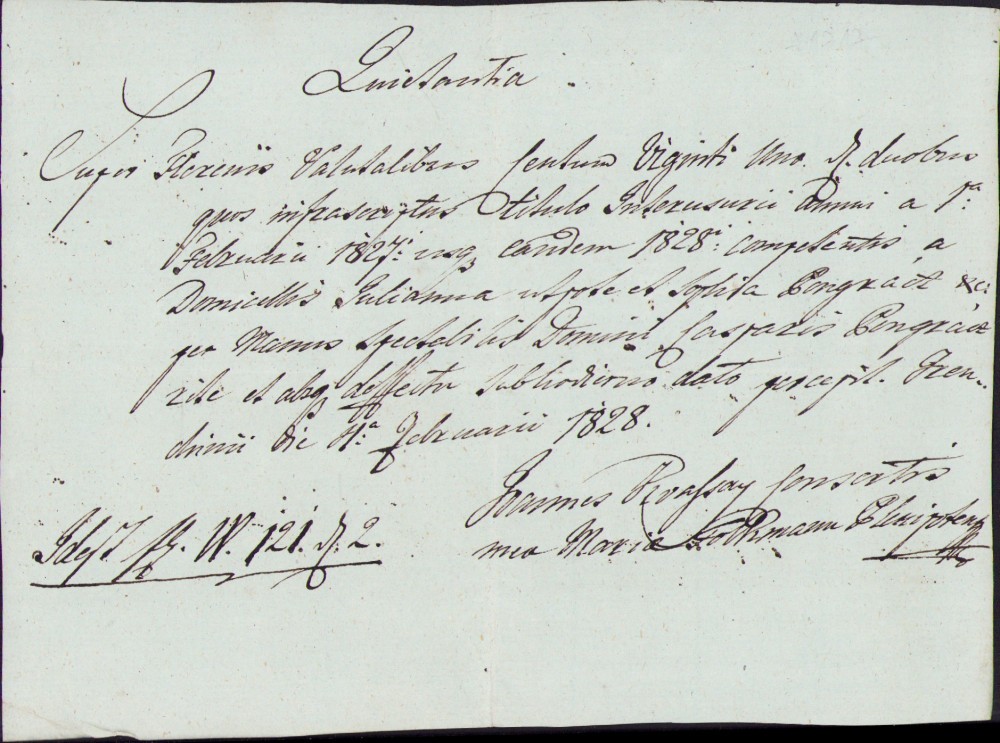 Quietantia
Super Florenis Valutalibus Centum Viginti Uno. d. duobus
quos infrascriptus titulo Interusurii Anni a 1a:
Februarii 1827: usq eandem 1828i: competentis, a
Domicellis Julianna utpote et Sofhia Pongracz &a:
per Manus Spectabilis Domini Casparis Pongracz
rite et absq deffectu subhodierno dato percepit. Tren-
chinii die 4a: Februarii 1828.
Joannes Consortis
mea Maria Plenipotens
Idest f. W. 121. d. 2.